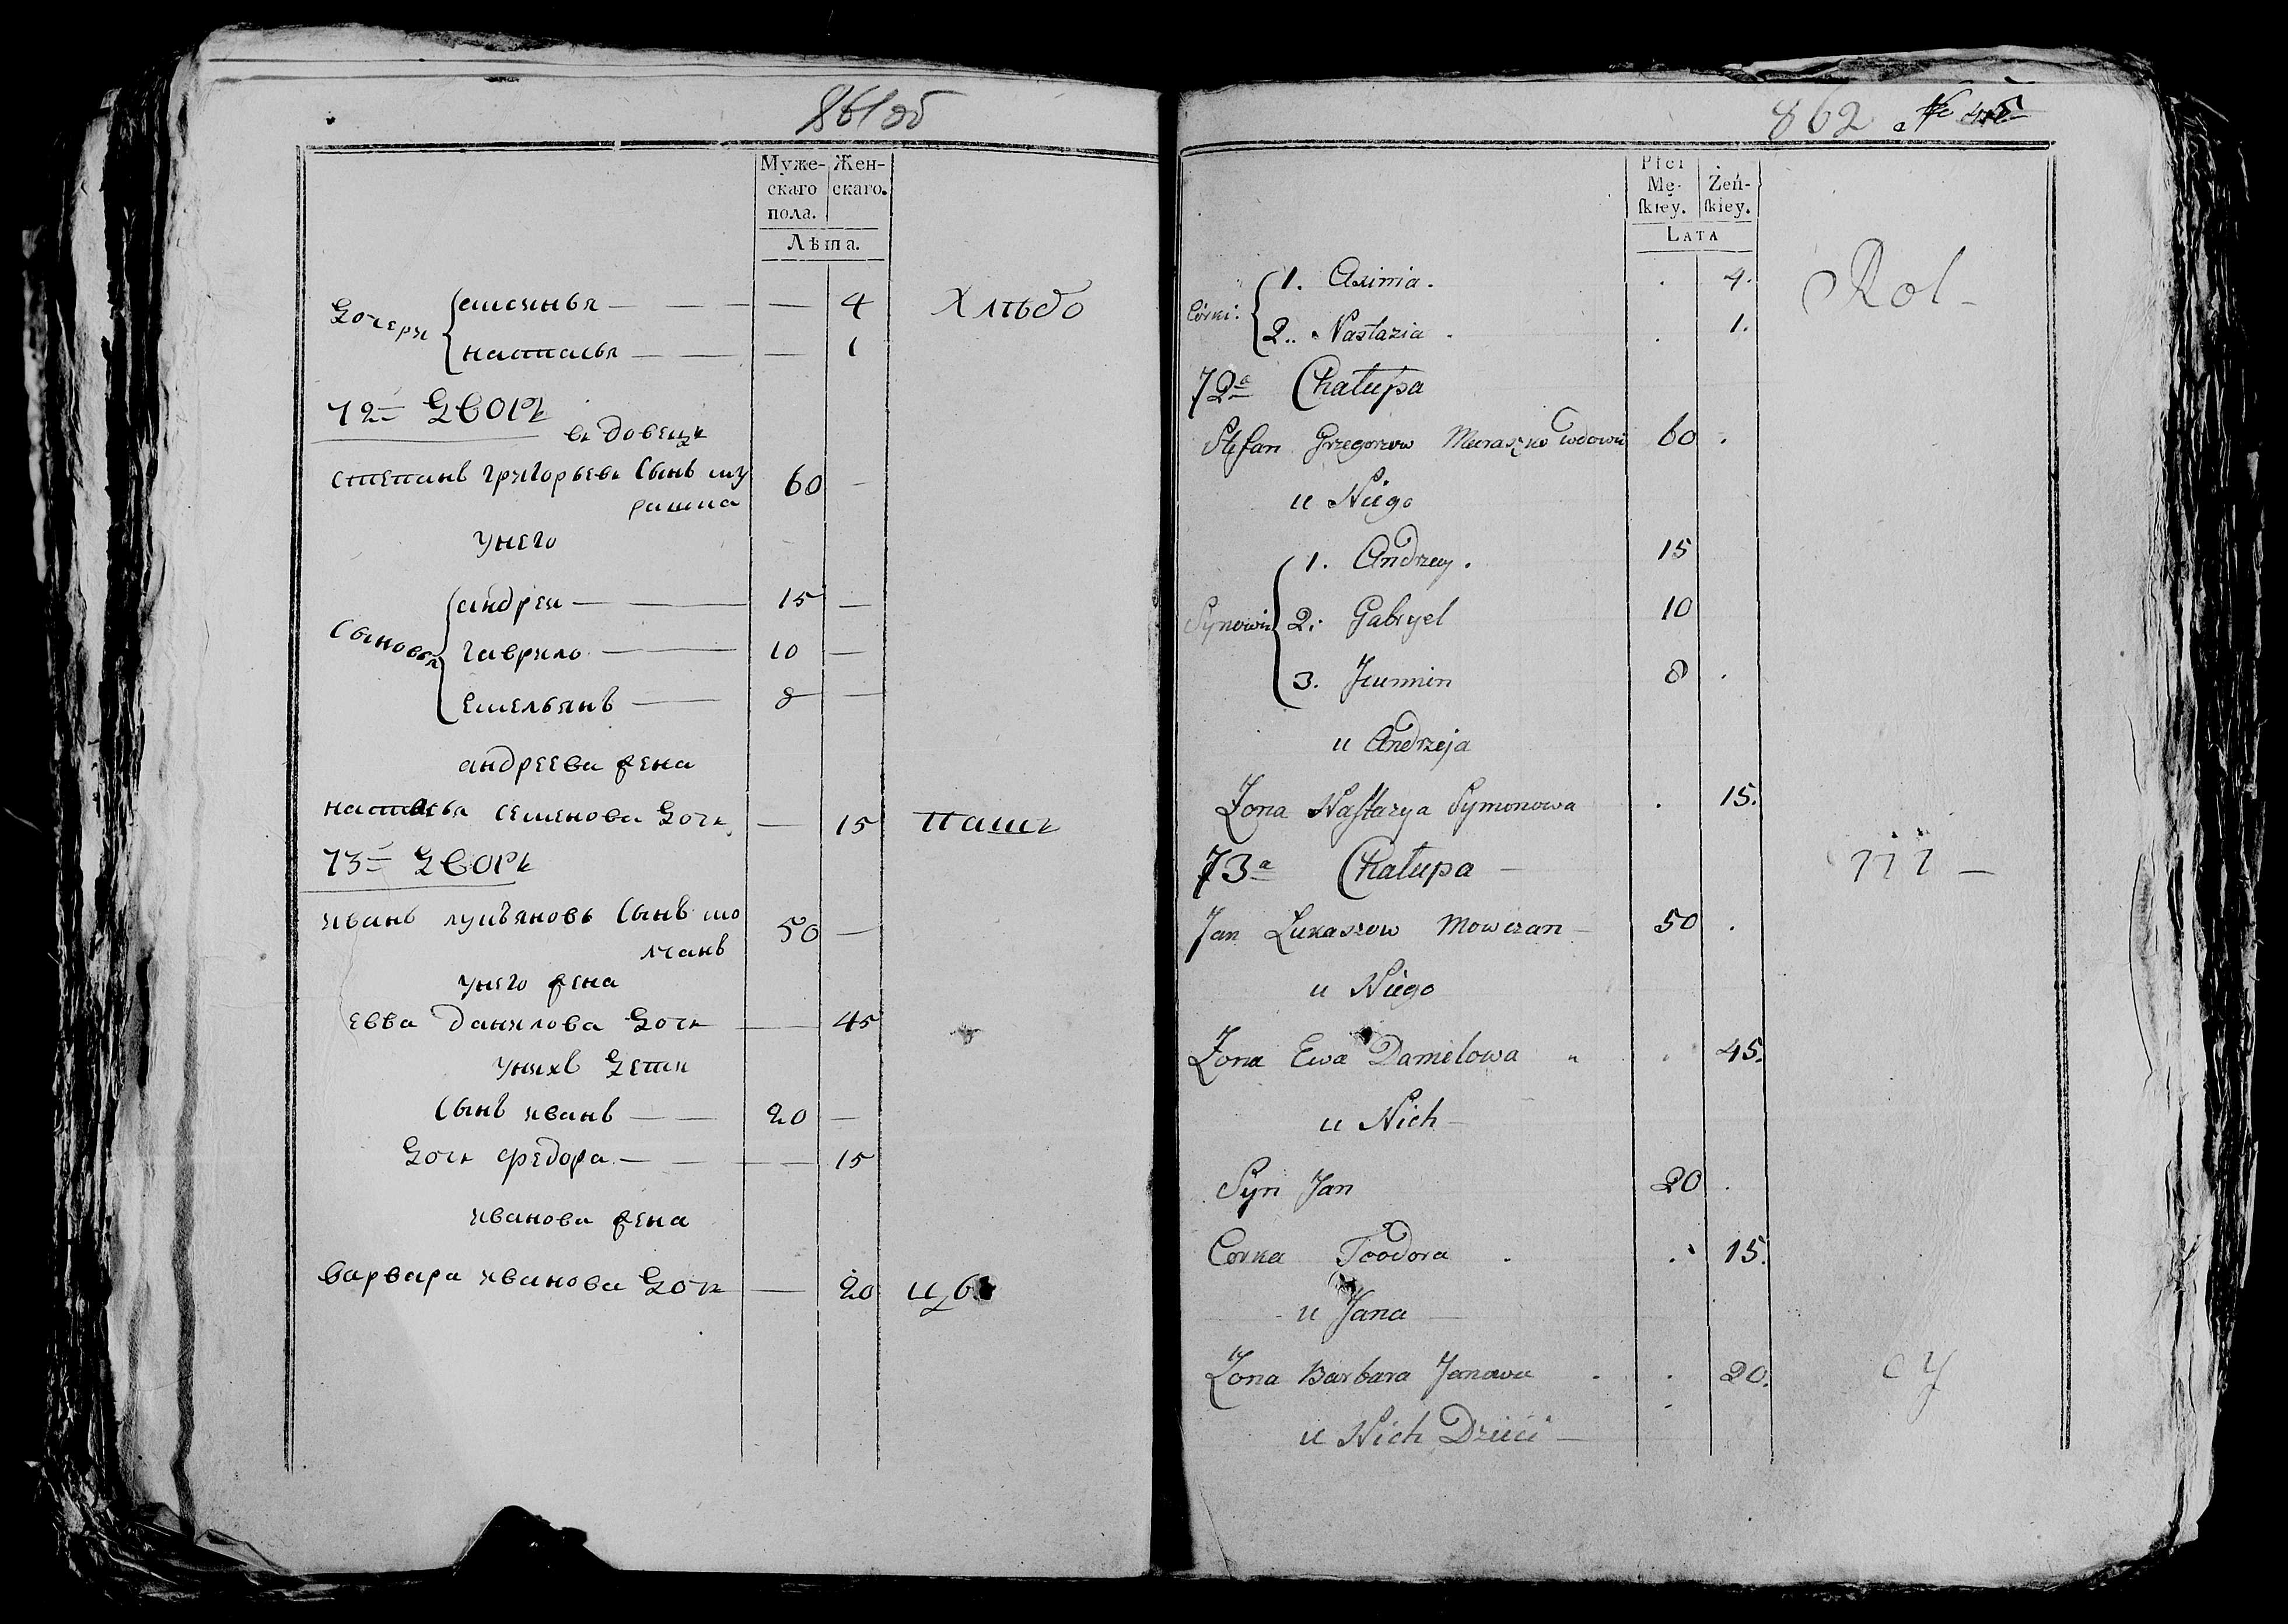 861об
Муже-
скаго
пола.
Жен-
скаго.
Лѣта.
Дочери
аксинья — 4 Хлѣбо
настасья — 1
72й Дворъ
вдовецъ
степанъ григорьевъ Сынъ му
рашка 60 —
унего
Сыновья
андреи — 15 —
гаврило — 10 —
емельянъ — 8 —
андреева жена
настасья семенова Дочь — 15 паш
73й Дворъ
иванъ лукьяновъ Сынъ мо
лчанъ 50 —
унего жена
евва данилова Дочь — 45
унихъ Дети
Сынъ иванъ — 20 —
Дочь федора — 15
иванова жена
варвара иванова Дочь — 20 цы
862 № 45
Płci
Mę-
ſkiey.
Żeń-
ſkiey.
Lata
Córki:
1. Axinia . . 4. Rol-
2. Nastazia . . 1.
72a Chałupa
Stefan Grzegorzow Muraszko wdowiec 60 .
u Niego
Synowie
1. Andrzey . 15
2. Gabryel 10
3. 8 .
u Andrzeja
Zona Nastazya Symonowa . 15.
73a Chałupa — nii —
Jan Łukaszow Mowczan — 50 .
u Niego
Zona Ewa Danielowa . 45.
u Nich —
Syn Jan 20 .
Corka Teodora . . 15.
u Jana —
Zona Barbara Janowa . . 20. cy
u Nich Dzieci —